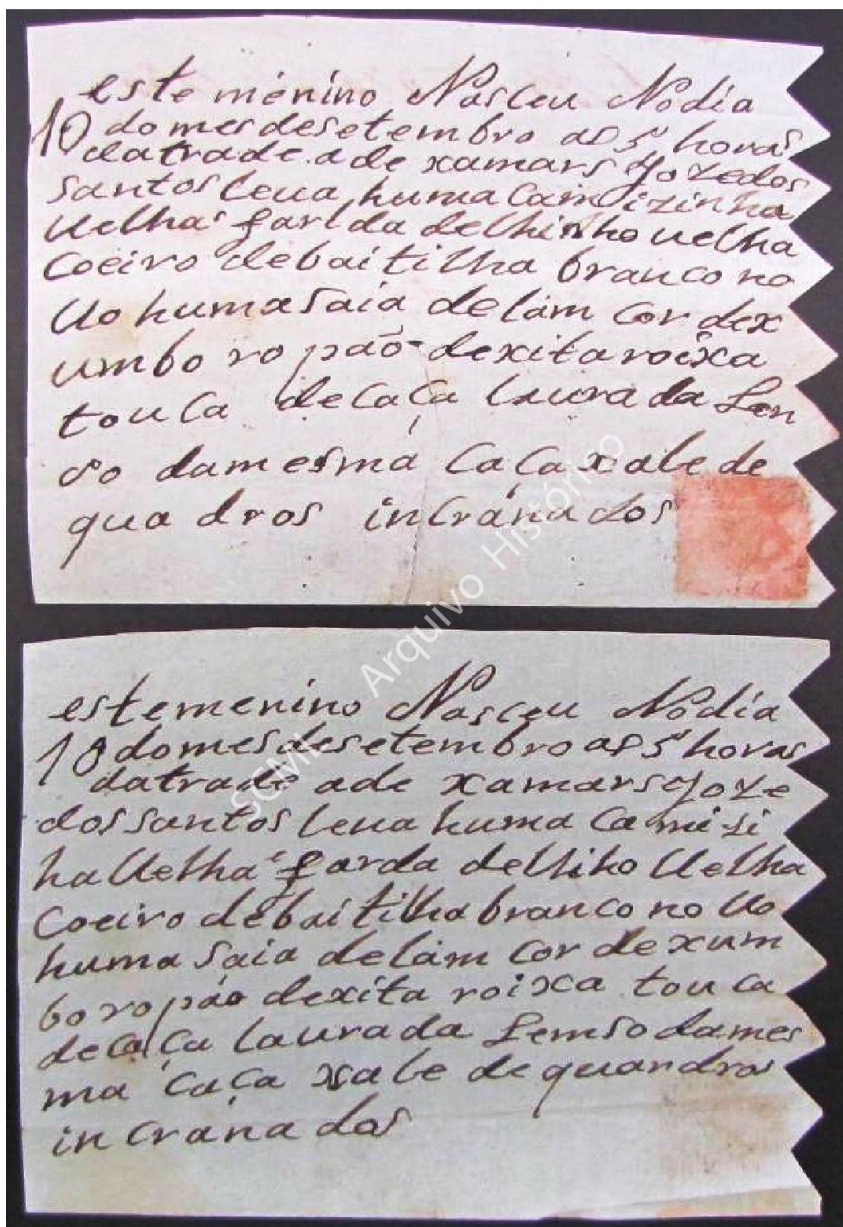 este menino Nasceu Nodia
10 domesdesetembro as 5 horas
datrade ade xamars Jozedos
Santos leua huma Camizinha
Uelha farlda delhinho uelha
Coeiro debaitilha branco no
Uo humasaia delam Cor dex
umbo ropão dexita roixa
touca decaça laurada Len
so damesma Caça xale de
quadros incranados
estemenino Nasceu Nodia
10 domesdesetembro as 5 horas
datrade ade xamars Joze
dossantos leua huma Camizi
ha Uelha farda delhiho Uelha
Coeiro debaitilha branco no Uo
huma saia delam Cor dexum
bo ropão dexita roixa touca
decaça laurada Lemso dames
ma Caça xale de quandros
incranados
SCML Arquivo Histórico